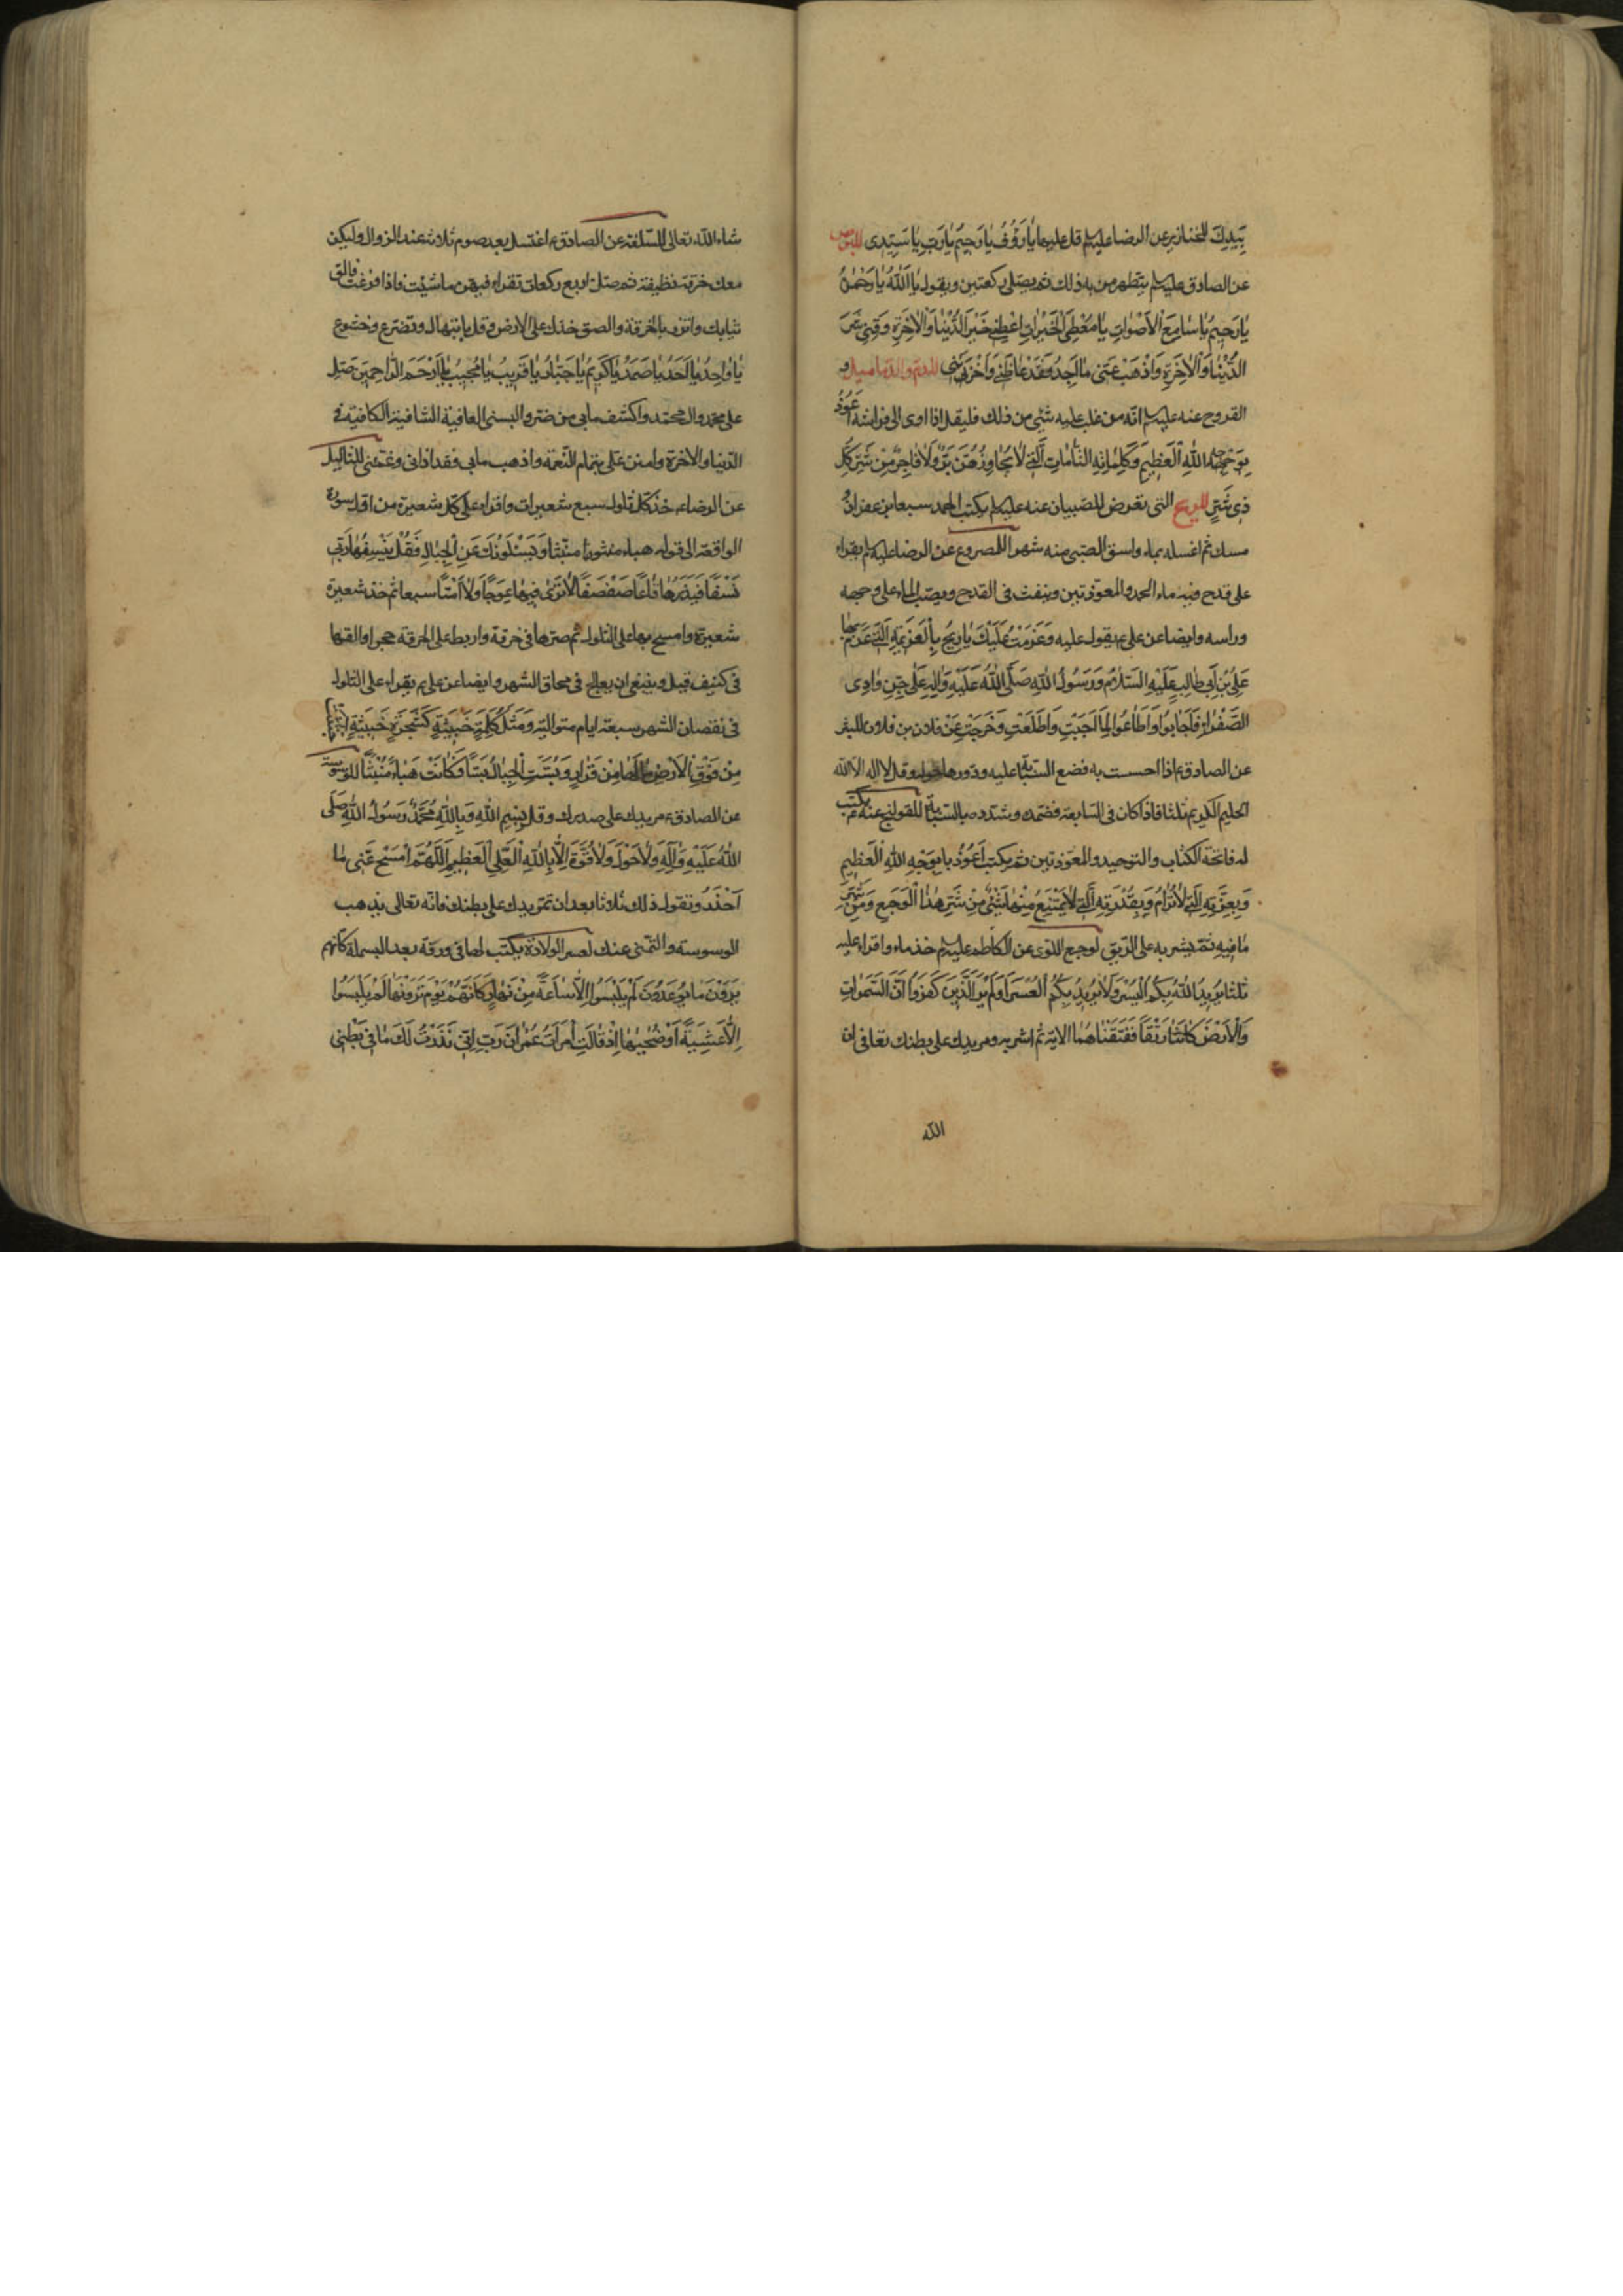 بِيَدِكَ للخنازير عن الرضا عليه‌السلم قل عليها يٰا رَؤُفُ يٰا رَحِيمُ يٰا رَبِّ يٰا سَيِّدِى للبرص
عن الصادق عليه‌السلم يتطهر من به ذلك ثم يصلى ركعتين ويقول يٰا اَللّٰهُ يٰا رَحْمٰنُ
يٰا رَحِيمُ يٰا سٰامِعَ الْاَصْوٰاتِ يٰا مُعْطِىَ الْخَيْرٰاتِ اَعْطِنِى خَيْرَ الدُّنْيٰا وَالْاٰخِرَةِ وَقِنِى شَرَّ
الدُّنْيٰا وَالْاٰخِرَةِ وَاذْهَبْ عَنِّى مٰا اَجِدُ فَقَدْ غٰاظَنِى وَاَحْزَنَنِى للدم والدماميل و
القروح عنه عليه‌السلم انّه من غلب عليه شئ من ذلك فليقل اذا اوى الى فراشه اَعُوذُ
بِوَجْهِ اللّٰهِ الْعَظِيمِ وَكَلِمٰاتِهِ التّٰامّٰاتِ الَّتِى لٰا يُجٰاوِزُهُنَّ بَرٌّ وَلٰا فٰاجِرٌ مِنْ شَرِّ كُلِّ
ذِى شَرٍّ للريح التى تعرض للصبيان عنه عليه‌السلم يكتب الحمد سبعا بزعفران و
مسك ثم اغسله بماء واسق الصبى منه شهرا للمصروع عن الرضا عليه‌السلم يقراء
على قدح فيه ماء الحمد والمعوذتين وينفث فى القدح ويصبّ الماء على وجهه
وراسه وايضا عن على ع يقول عليه وَعَزَمْتُ عَلَيْكَ يٰا رِيحُ بِالْعَزِيمَةِ الَّتِى عَزَمَ بِهٰا
عَلِىُّ بْنُ اَبِى طٰالِبٍ عَلَيْهِ السَّلٰامُ وَرَسُولُ اللّٰهِ صَلَّى اللّٰهُ عَلَيْهِ وَاٰلِهِ عَلٰى جِنِّ وٰادِى
الصَّفْرٰاءِ فَاَجٰابُوا وَاَطٰاعُوا لَمّٰا اَجَبْتِ وَاَطَعْتِ وَخَرَجْتِ عَنْ فلان بن فلان للبثر
عن الصادق ع اذا احسست به فضع السبّابة عليه ودوّرها حوله وقل لا اله الا الله
الحليم الكريم ثلثا فاذا كان فى السابعة فضمّده وشدّده بالسبّابة للقولنج عنه ع يكتب
له فاتحة الكتاب والتوحيد والمعوّذتين ثم يكتب اَعُوذُ بِوَجْهِ اللّٰهِ الْعَظِيمِ
وَبِعِزَّتِهِ الَّتِى لٰا تُرٰامُ وَبِقُدْرَتِهِ الَّتِى لٰا يَمْتَنِعُ مِنْهٰا شَيْئٌ مِنْ شَرِّ هٰذَا الْوَجَعِ وَمِنْ شَرِّ
مٰا فِيهِ ثمّ يشربه على الريق لوجع اللوى عن الكاظم عليه‌السلم خذ ماء واقراء عليه
ثلثا يُرِيدُ اللّٰهُ بِكُمُ الْيُسْرَ وَلٰا يُرِيدُ بِكُمُ الْعُسْرَ اَوَلَمْ يَرَ الَّذِينَ كَفَرُوا اَنَّ السَّمٰوٰاتِ
وَالْاَرْضَ كٰانَتٰا رَتْقًا فَفَتَقْنٰاهُمٰا الاية ثم اشربه ومر يدك على بطنك تعافى ان
الله
شاء الله تعالى للسلعة عن الصادق ع اغتسل بعد صوم ثلاثة عند الزوال وليكن
معك خرقة نظيفة ثم صلّ اربع ركعات تقراء فيهنّ ما شئت فاذا فرغت فالق
ثيابك واتزر بالخرقة والصق خدّك على الارض وقل بابتهال وتضرع وخشوع
يٰا وٰاحِدُ يٰا اَحَدُ يٰا صَمَدُ يٰا كَرِيمُ يٰا جَبّٰارُ يٰا قَرِيبُ يٰا مُجِيبُ يٰا اَرْحَمَ الرّٰاحِمِينَ صَلِّ
على محمد وال محمد واكشف مابى من ضر والبسنى العافية الشافية الكافية فى
الدنيا والاخرة وامنن على بتمام النعمة واذهب مابى فقد اذانى وغمّنى للثاليل
عن الرضا ع خذ كلّ ثالول سبع شعيرات واقراء على كل شعيرة من اول سورة
الواقعة الى قوله هباء منبثا وَيَسْئَلُونَكَ عَنِ الْجِبٰالِ فَقُلْ يَنْسِفُهٰا رَبِّى
نَسْفًا فَيَذَرُهٰا قٰاعًا صَفْصَفًا لٰا تَرٰى فِيهٰا عِوَجًا وَلٰا اَمْتًا سبعا ثم خذ شعيرة
شعيرة وامسح بها على الثالول ثم صرّها فى خرقة واربط على الخرقة حجرا والقها
فى كنيف قيل وينبغى ان يعالج فى محاق الشهر وايضا عن على ع يقراء على الثالول
فى نقصان الشهر سبعة ايام متوالية وَمَثَلُ كَلِمَةٍ خَبِيثَةٍ كَشَجَرَةٍ خَبِيثَةٍ اجْتُثَّتْ
مِنْ فَوْقِ الْاَرْضِ مٰا لَهٰا مِنْ قَرٰارٍ وَبُسَّتِ الْجِبٰالُ بَسًّا فَكٰانَتْ هَبٰاءً مُنْبَثًّا للوسوسة
عن الصادق ع مر يدك على صدرك وقل بِسْمِ اللّٰهِ وَبِاللّٰهِ مُحَمَّدٌ رَسُولُ اللّٰهِ صَلَّى
اللّٰهُ عَلَيْهِ وَاٰلِهِ وَلٰا حَوْلَ وَلٰا قُوَّةَ اِلّٰا بِاللّٰهِ الْعَلِىِّ الْعَظِيمِ اَللّٰهُمَّ امْسَحْ عَنِّى مٰا
اَحْذَرُ وتقول ذلك ثلاثا بعد ان تمرّ يدك على بطنك فانّه تعالى يذهب
الوسوسة والتمنى عنك لعسر الولادة يكتب لها فى ورقة بعد البسملة كَاَنَّهُمْ
يَرَوْنَ مٰا يُوعَدُونَ لَمْ يَلْبَثُوا اِلّٰا سٰاعَةً مِنْ نَهٰارٍ كَاَنَّهُمْ يَوْمَ يَرَوْنَهٰا لَمْ يَلْبَثُوا
اِلّٰا عَشِيَّةً اَوْ ضُحٰيهٰا اِذْ قٰالَتِ امْرَاَتُ عِمْرٰانَ رَبِّ اِنِّى نَذَرْتُ لَكَ مٰا فِى بَطْنِى